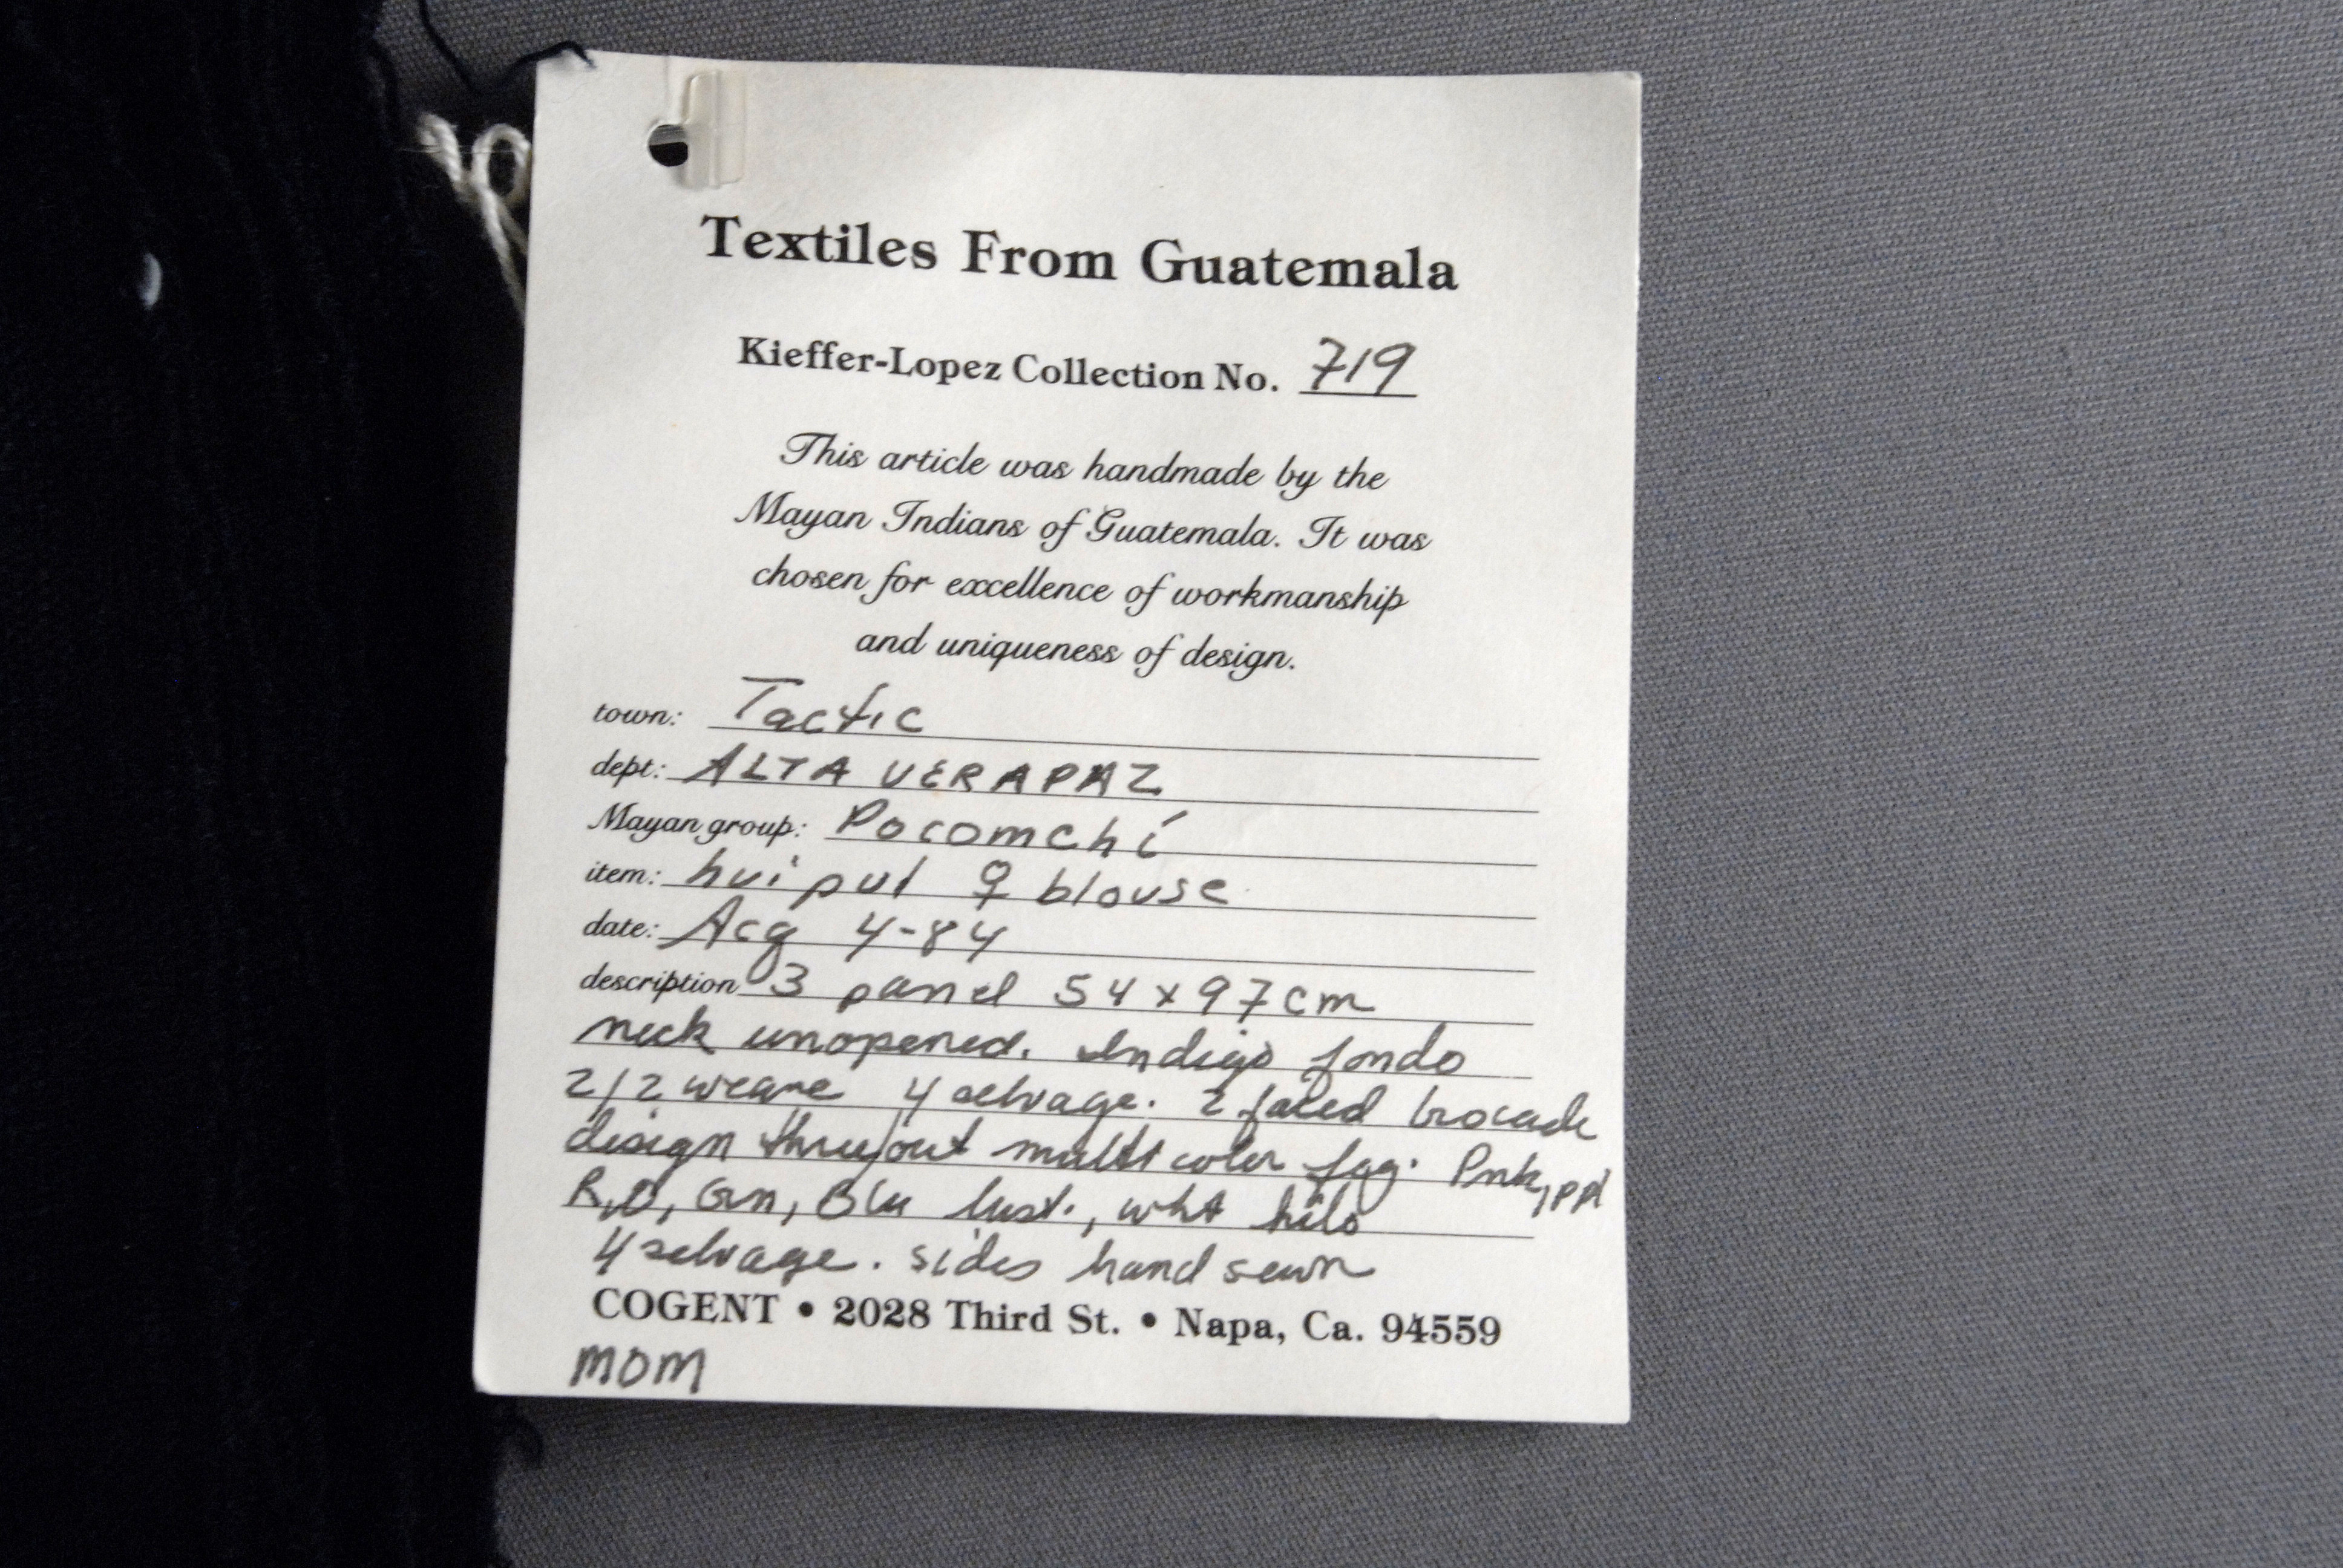 Textiles From Guatemala
Kieffer-Lopez Collection No. 719
This article was handmade by the
Mayan Indians of Guatemala. It was
chosen for excellence of workmanship
and uniqueness of design.
town: Tactic
dept: ALTA VERAPAZ
Mayan group: Pocomchí
item: huipul ♀ blouse
date: Acq 4-84
description 3 panel 54 x 97cm
neck unopened. Indigo fondo
2/2 weave 4 selvage. 2 faced brocade
design thru/out multi color fig. Pnk, ppl
R, O, Grn, Blu lust., wht hilo
4 selvage. sides hand sewn
COGENT • 2028 Third St. • Napa, Ca. 94559
MOM